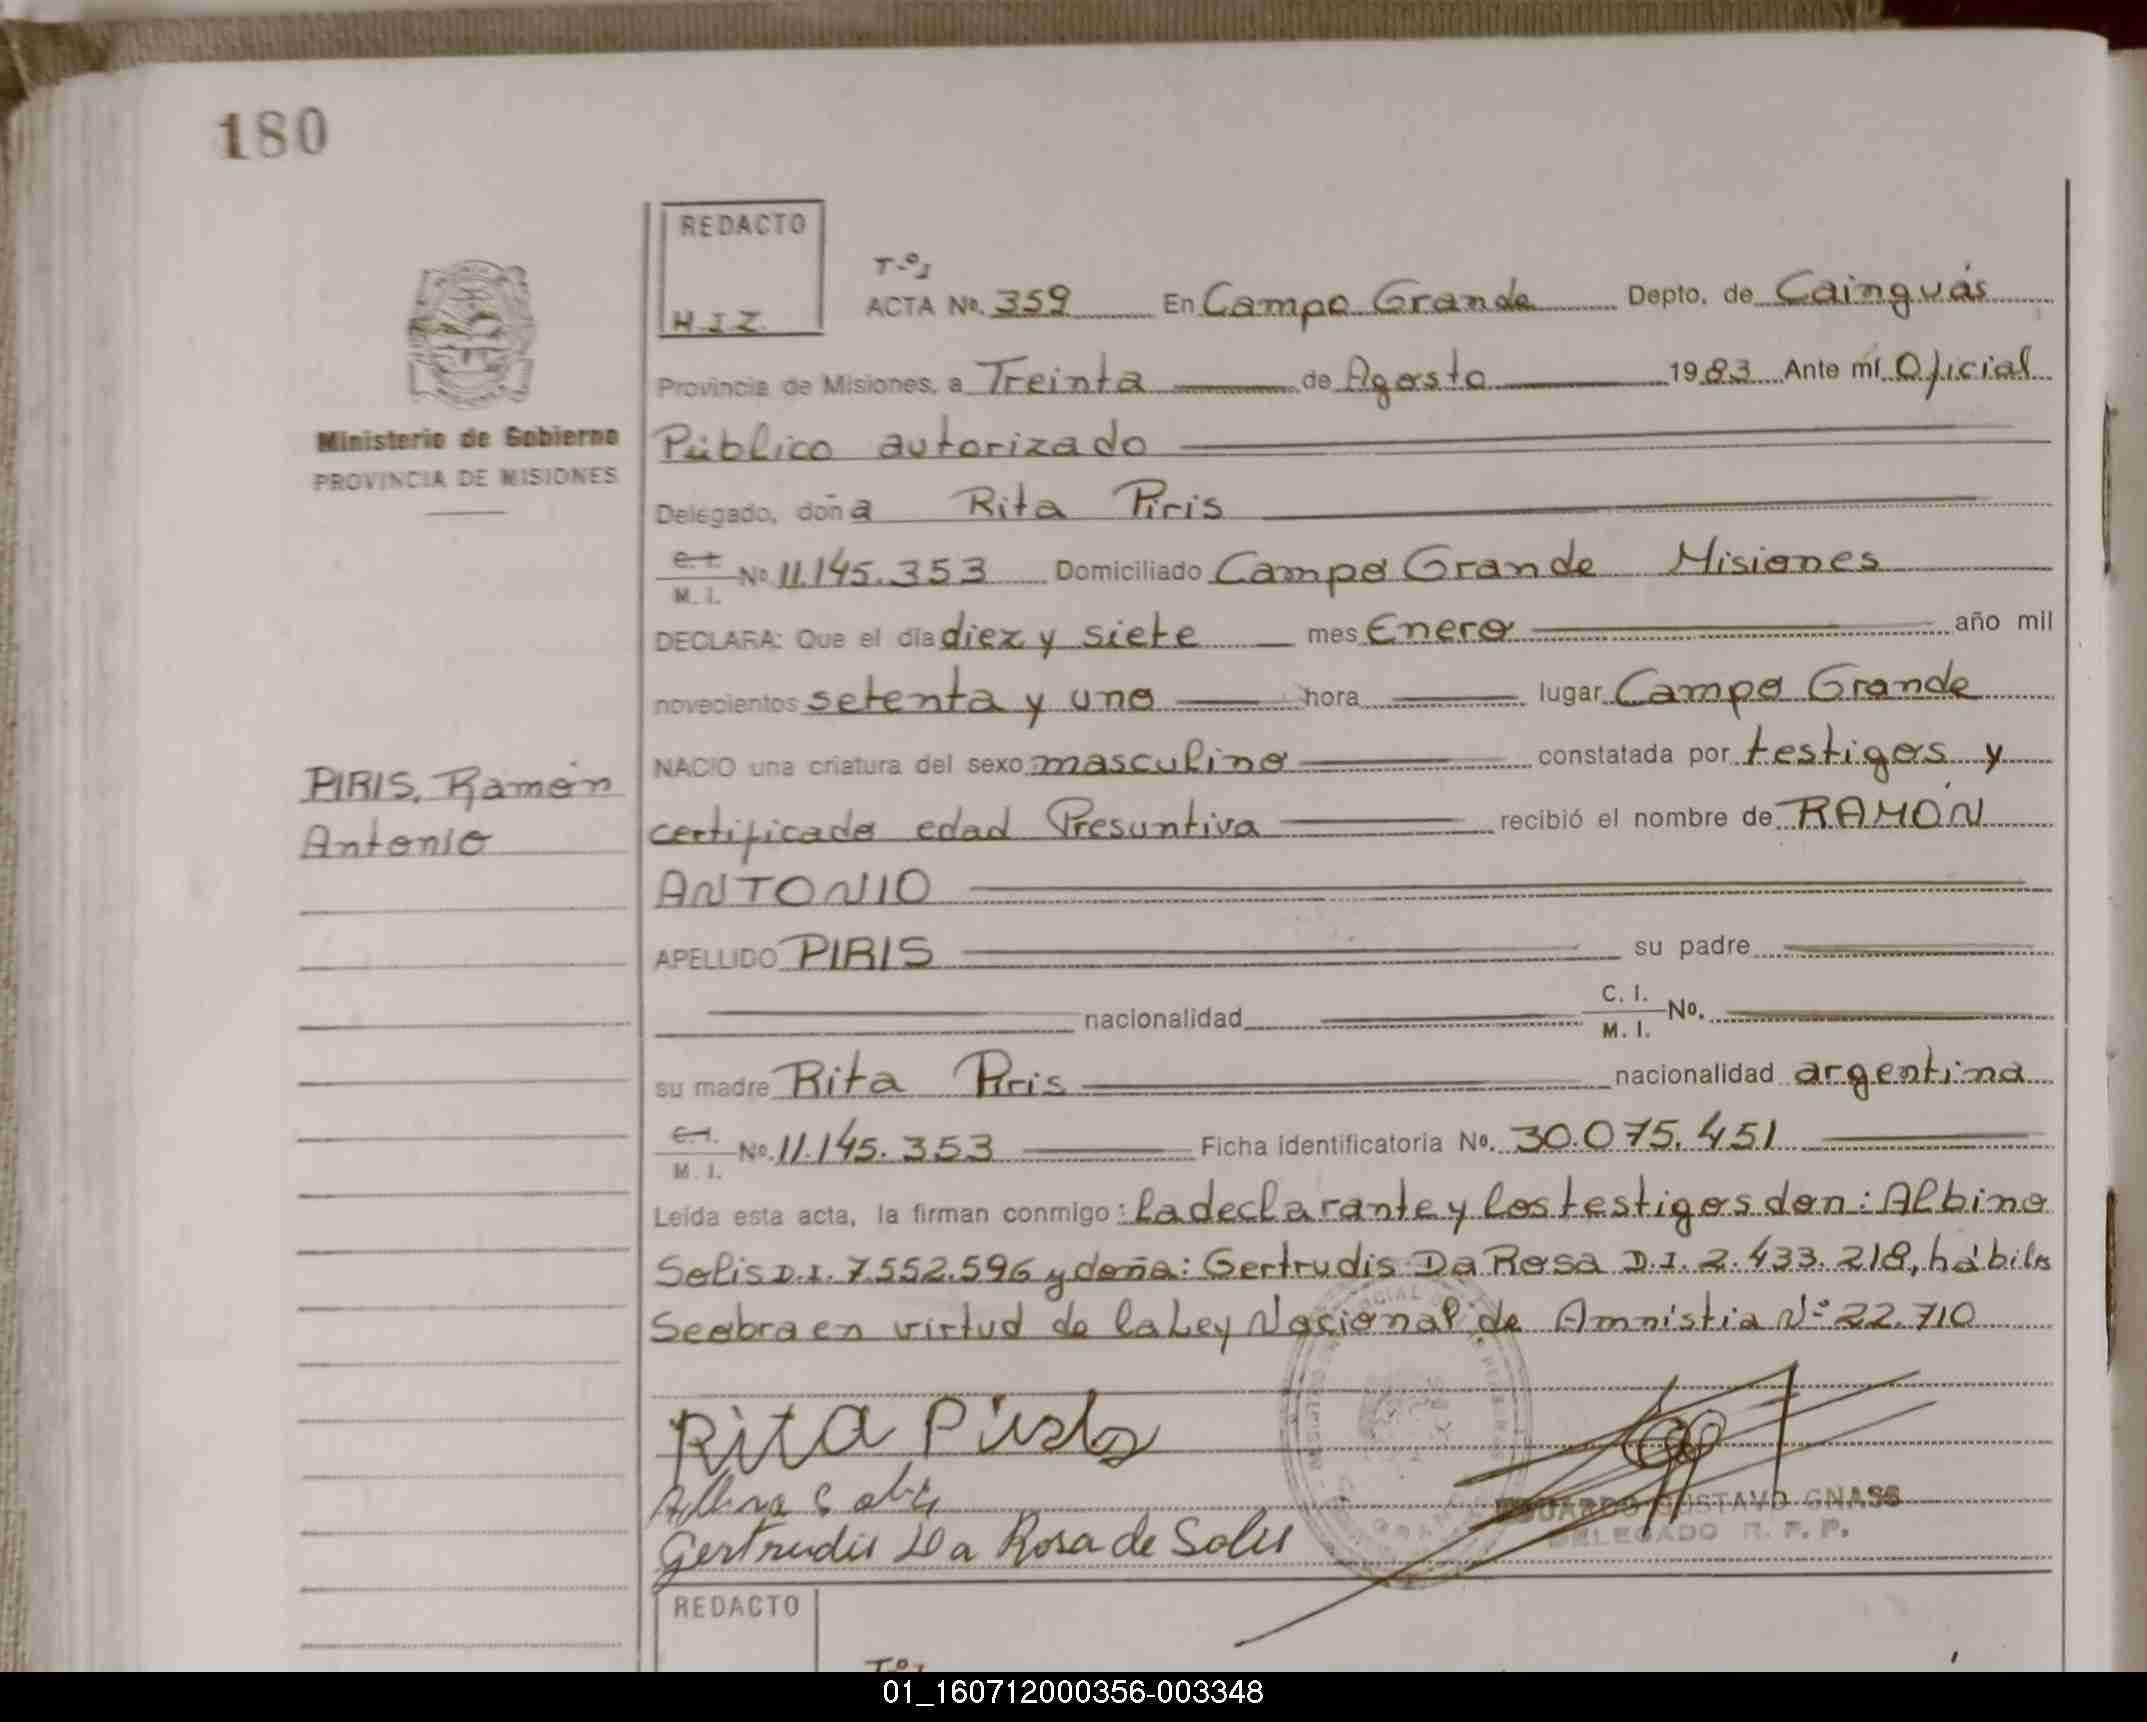 180
REDACTO
H.I.Z.
T-º1
ACTA Nº. 359 En Campo Grande Depto. de Cainguás
Provincia de Misiones, a Treinta de Agosto 1983 Ante mí Oficial
Ministerio de Gobierno
PROVINCIA DE MISIONES
Público autorizado
Delegado, doña Rita Piris
C.I. M.I. Nº 11.145.353 Domiciliado Campo Grande Misiones
DECLARA: Que el día diez y siete mes Enero año mil
novecientos setenta y uno hora lugar Campo Grande
PIRIS, Ramón
Antonio
NACIO una criatura del sexo masculino constatada por testigos y
certificado edad Presuntiva recibió el nombre de RAMÓN
ANTONIO
APELLIDO PIRIS su padre
nacionalidad C. I. M. I. Nº.
su madre Rita Piris nacionalidad argentina
C.I. M.I. Nº. 11.145.353 Ficha identificatoria Nº. 30.075.451
Leída esta acta, la firman conmigo: la declarante y los testigos don: Albino
Solis D.I. 7.552.596 y doña: Gertrudis Da Rosa D.I. 2.433.218, hábiles
Se obra en virtud de la Ley Nacional de Amnistia Nº 22.710
Rita Piris
Albino Solis
EDUARDO GUSTAVO GNASS
DELEGADO R. P. P.
Gertrudis Da Rosa de Solis
REDACTO
Tº1
01_160712000356-003348